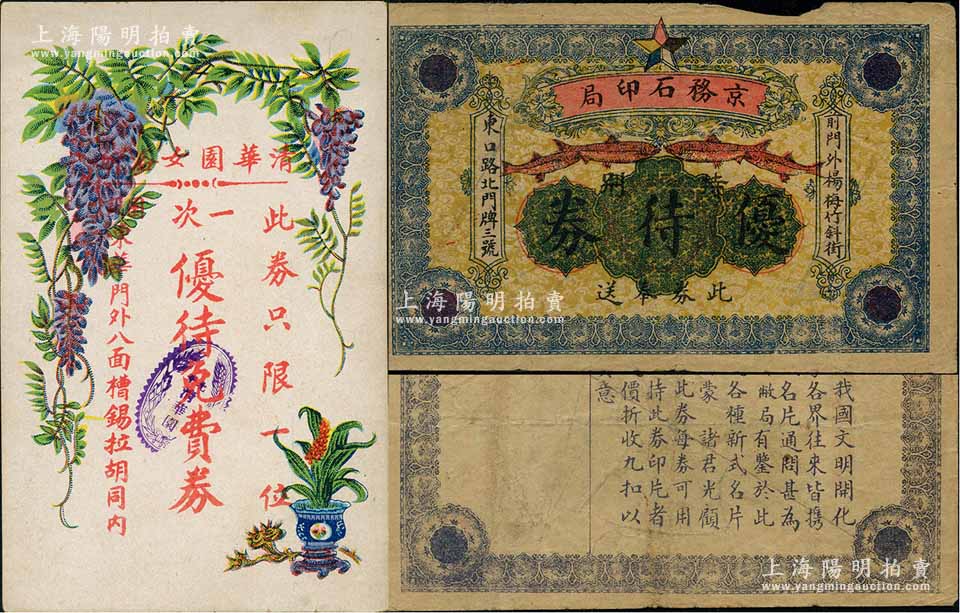 上海陽明拍賣
www.yangmingauction.com
清華園女
此券只限一位
一次
優待免費券
東華門外八面槽錫拉胡同內
京務石印局
前門外楊梅竹斜街
東口路北門牌三號
特別
優待券
此券奉送
上海陽明拍賣
www.yangmingauction.com
我國文明開化
各界往來皆携
名片通問甚為
敝局有鑒於此
各種新式名片
蒙諸君光顧
此券每券可用
持此券印片者
價折收九扣以
意
上海陽明拍賣
www.yangmingauction.com